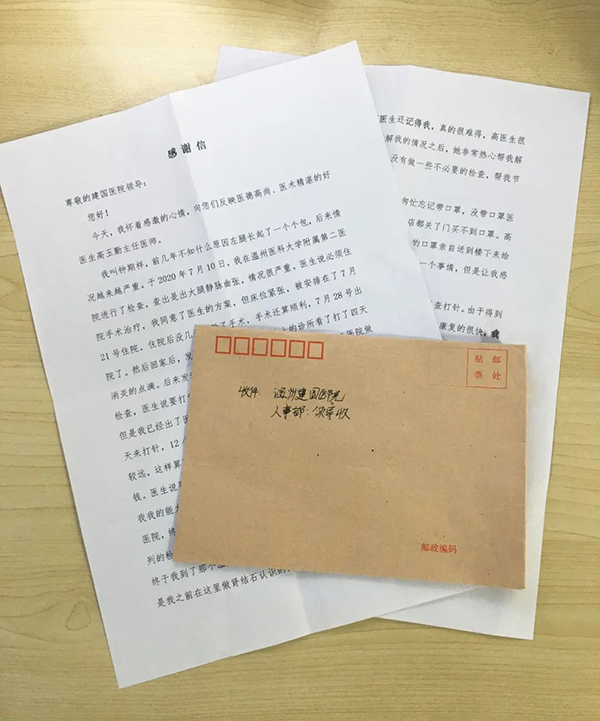 感谢信
尊敬的建国医院领导：
您好！
今天，我怀着感激的心情，向您们反映医德高尚、医术精湛的好
医生高玉勤主任医师。
我叫钟期样，前几年不知什么原因左腿长起了一个个包，后来情
况越来越严重。于 2020 年 7 月 10 日，我在温州医科大学附属第二医
院进行了检查，查出是出大腿静脉曲张，情况很严重。医生说必须住
院手术治疗，我同意了医生的方案，但床位紧张，被安排在了 7 月
21 号住院。住院后没几 了手术，手术还算顺利，7 月 28 号出
院了。然后回家后，发 的诊所看了打了四天
消炎的点滴。后来发 医院做
检查，医生说要打
但是我已经出了医
天来打针，12
较远，这样算
钱。医生说
我我的能
医院，终
列的检
终于我到了那个
是我之前在这里做肾结石认识的
医生还记得我，真的很难得，高医生很
解我的情况之后，她非常热心帮我解
没有做一些不必要的检查，帮我节
匆忙忘记带口罩，没带口罩医
店都关了门买不到口罩。高
的口罩亲自送到楼下来给
一个事情，但是让我感
查打针。由于得到
康复的很快。我
贴 邮
票 处
收件：温州建国医院
人事部： 收
邮政编码